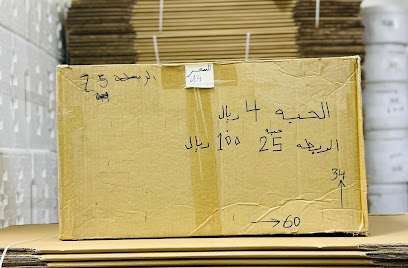 الربطه 25
السعر
14
الحبه 4 ريال
الربطه 25 حبه 100 ريال
34
60